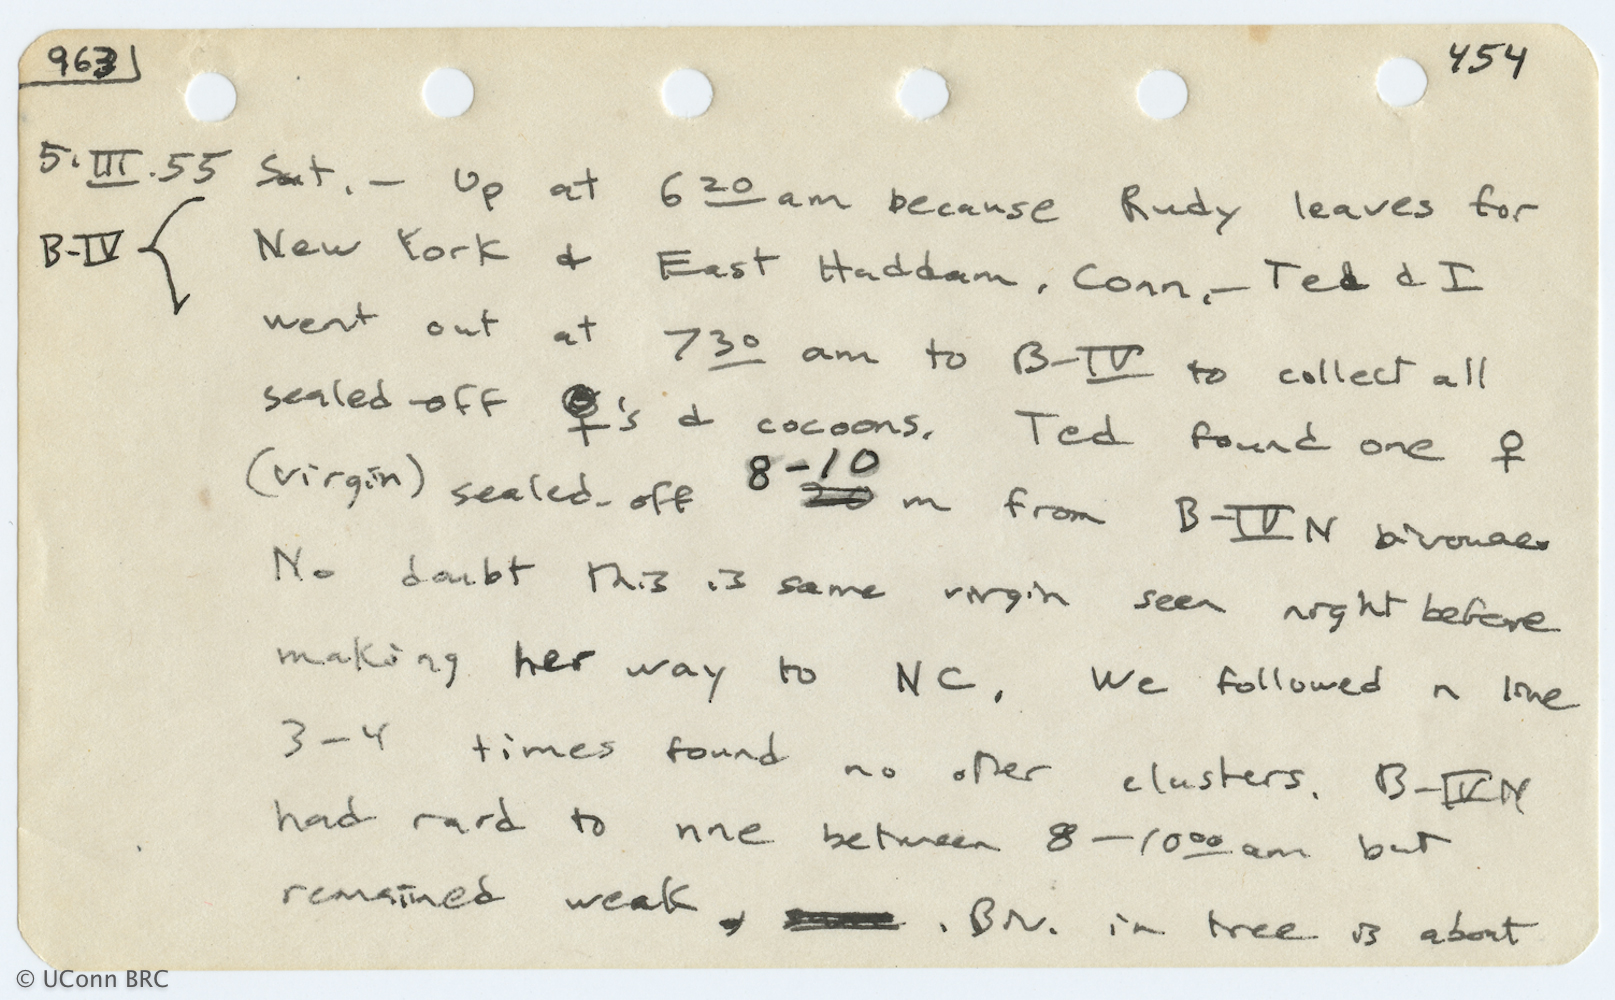 963 454
5.III.55 Sat. — Up at 6 20 am because Rudy leaves for
B-IV New York & East Haddam, Conn. — Ted & I
went out at 730 am to B-IV to collect all
sealed-off ♀'s & cocoons. Ted found one ♀
(virgin) sealed-off 8-10 m from B-IV N bivouac.
No doubt this is same virgin seen night before
making her way to NC. We followed n line
3-4 times found no other clusters. B-IV N
had raid to nne between 8-1000 am but
remained weak. Biv. in tree is about
© UConn BRC